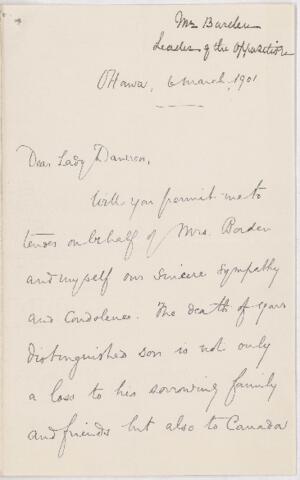 Mr Borden
Leader of the Opposition
Ottawa, 6 March, 1901
Dear Lady Dawson,
Will you permit me to
tender on behalf of Mrs. Borden
and myself our sincere sympathy
and condolence. The death of your
distinguished son is not only
a loss to his sorrowing family
and friends but also to Canada